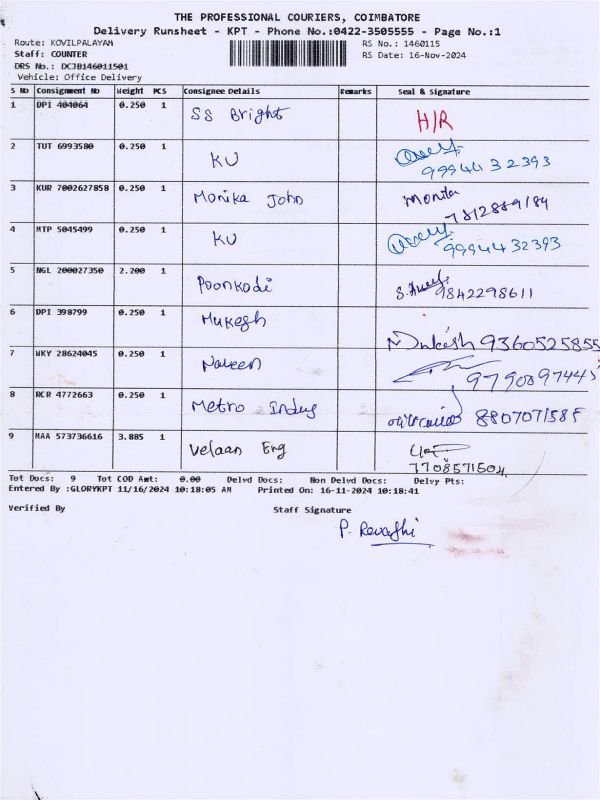 THE PROFESSIONAL COURIERS, COIMBATORE
Delivery Runsheet - KPT - Phone No.:0422-3505555 - Page No.:1
Route: KOVILPALAYAM RS No.: 1460115
Staff: COUNTER RS Date: 16-Nov-2024
DRS No.: DCJB146011501
Vehicle: Office Delivery
S No Consignment No Weight PCS Consignee Details Remarks Seal & Signature
1 DPI 404064 0.250 1 SS Bright H/R
2 TUT 6993580 0.250 1 KU 9994432393
3 KUR 7002627858 0.250 1 Monika John Monika 7812889184
4 MTP 5045499 0.250 1 KU 9994432393
5 NGL 200027350 2.200 1 Poonkodi 9842298611
6 DPI 398799 0.250 1 Mukesh Mukesh 9360525855
7 WKY 28624045 0.250 1 Naveen 9790897445
8 RCR 4772663 0.250 1 Metro Indus 8807071585
9 MAA 573736616 3.885 1 Velaan Eng 7708571504
Tot Docs: 9 Tot COD Amt: 0.00 Delvd Docs: Non Delvd Docs: Delvy Pts:
Entered By :GLORYKPT 11/16/2024 10:18:05 AM Printed On: 16-11-2024 10:18:41
Verified By Staff Signature
P. Revathi